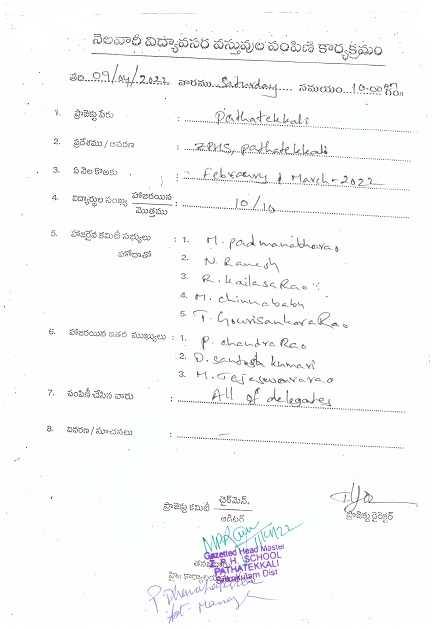 నెలవారీ విద్యావసర వస్తువుల పంపిణి కార్యక్రమం
తేది. 09/04/2022 వారము Saturday సమయం. 10.00 గం॥
1. ప్రాజెక్టు పేరు : Pathatekkali
2. ప్రదేశము / ఆవరణ : ZPHS, pathatekkali
3. ఏ నెల కొఱకు : Febraury & March-2022
4. విద్యార్థుల సంఖ్య హాజరయిన / మొత్తము : 10/10
5. హాజరైన కమిటీ సభ్యులు : 1. M. padmanabharao
హోదాతో 2. N. Ramesh
3. R. Kailasa Rao
4. M. chinnababu
5. T. Gourisankara Rao
6. హాజరయిన ఇతర ముఖ్యులు : 1. P. chandra Rao
2. D. santosh kumari
3. M. Tejeswararao
7. పంపిణీ చేసిన వారు : All of delegates
8. వివరణ / సూచనలు : –
ప్రాజెక్టు కమిటీ చైర్‌మెన్, ప్రాజెక్టు డైరెక్టర్
ఆడిటర్
Gazetted Head Master
Z.P.H. SCHOOL
PATHATEKKALI
Srikakulam Dist